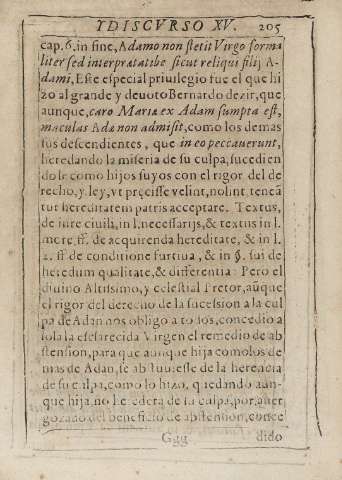 YDISCVRSO XV. 205
cap. 6. in fine, Adamo non stetit Virgo forma
liter sed interpratatibe sicut reliqui filij A-
dami, Este especial priuilegio fue el que hi
zo al grande y deuoto Bernardo dezir, que
aunque, caro Mariæ ex Adam sumpta est,
maculas Adæ non admisit, como los demas
sus descendientes, que in eo peccauerunt,
heredando la miseria de su culpa, sucedien
dole como hijos suyos con el rigor del de
recho, y ley, vt precisse velint, nolint teneā
tut hereditatem patris acceptare. Textus,
de iure ciuili, in l. necessarijs, & textus in l.
more, ff. de acquirenda hereditate, & in l.
2. ff. de conditione furtiua, & in §. sui de
heredum qualitate, & differentia: Pero el
diuino Altissimo, y celestial Pretor, aūque
el rigor del derecho de la sucession a la cul
pa de Adan nos obligo a todos, concedio a
sola la esclarecida Virgen el remedio de ab
stension, para que aunque hija como los de
mas de Adan, se abstuuiesse de la herencia
de su culpa, como lo hizo, quedando aun-
que hija, no heredera de su culpa, por auer
gozado del beneficio de abstension, conce
Ggg dido